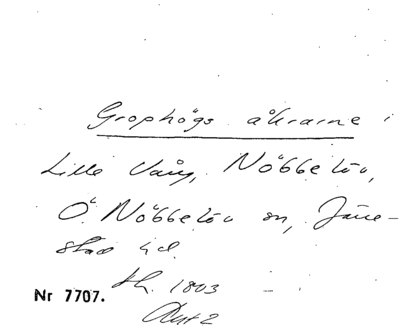 Grophögs åkrarne i
Lille Vång, Nöbbelöv,
Ö. Nöbbelöv sn, Järre-
stad hd.
Sk. 1803
Nr 7707.
Akt 2